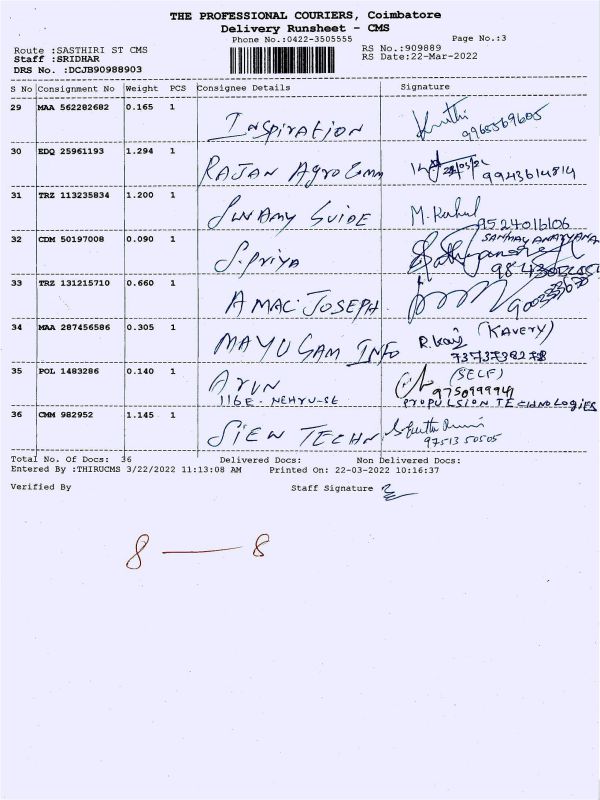 THE PROFESSIONAL COURIERS, Coimbatore
Delivery Runsheet - CMS
Phone No.:0422-3505555
Page No.:3
Route :SASTHIRI ST CMS
RS No.:909889
Staff :SRIDHAR
RS Date:22-Mar-2022
DRS No. :DCJB90988903
S No Consignment No Weight PCS Consignee Details Signature
29 MAA 562282682 0.165 1 INSPIRATION 9965569605
30 EDQ 25961193 1.294 1 RAJAN Agro 9943614814
31 TRZ 113235834 1.200 1 SWAMY GUIDE M. Rahul
9524016106
32 CDM 50197008 0.090 1 S.PRIYA
33 TRZ 131215710 0.660 1 AMAC JOSEPH
34 MAA 287456586 0.305 1 MAYUGAM INFO (KAVERY)
7373739278
35 POL 1483286 0.140 1 ARUN (SELF)
116E. NEHRU-SE 9750999941
PROPULSION TECHNOLOGIES
36 CMM 982952 1.145 1 SIEW TECHN
9751350505
Total No. Of Docs: 36 Delivered Docs: Non Delivered Docs:
Entered By :THIRUCMS 3/22/2022 11:13:08 AM Printed On: 22-03-2022 10:16:37
Verified By Staff Signature
8 — 8